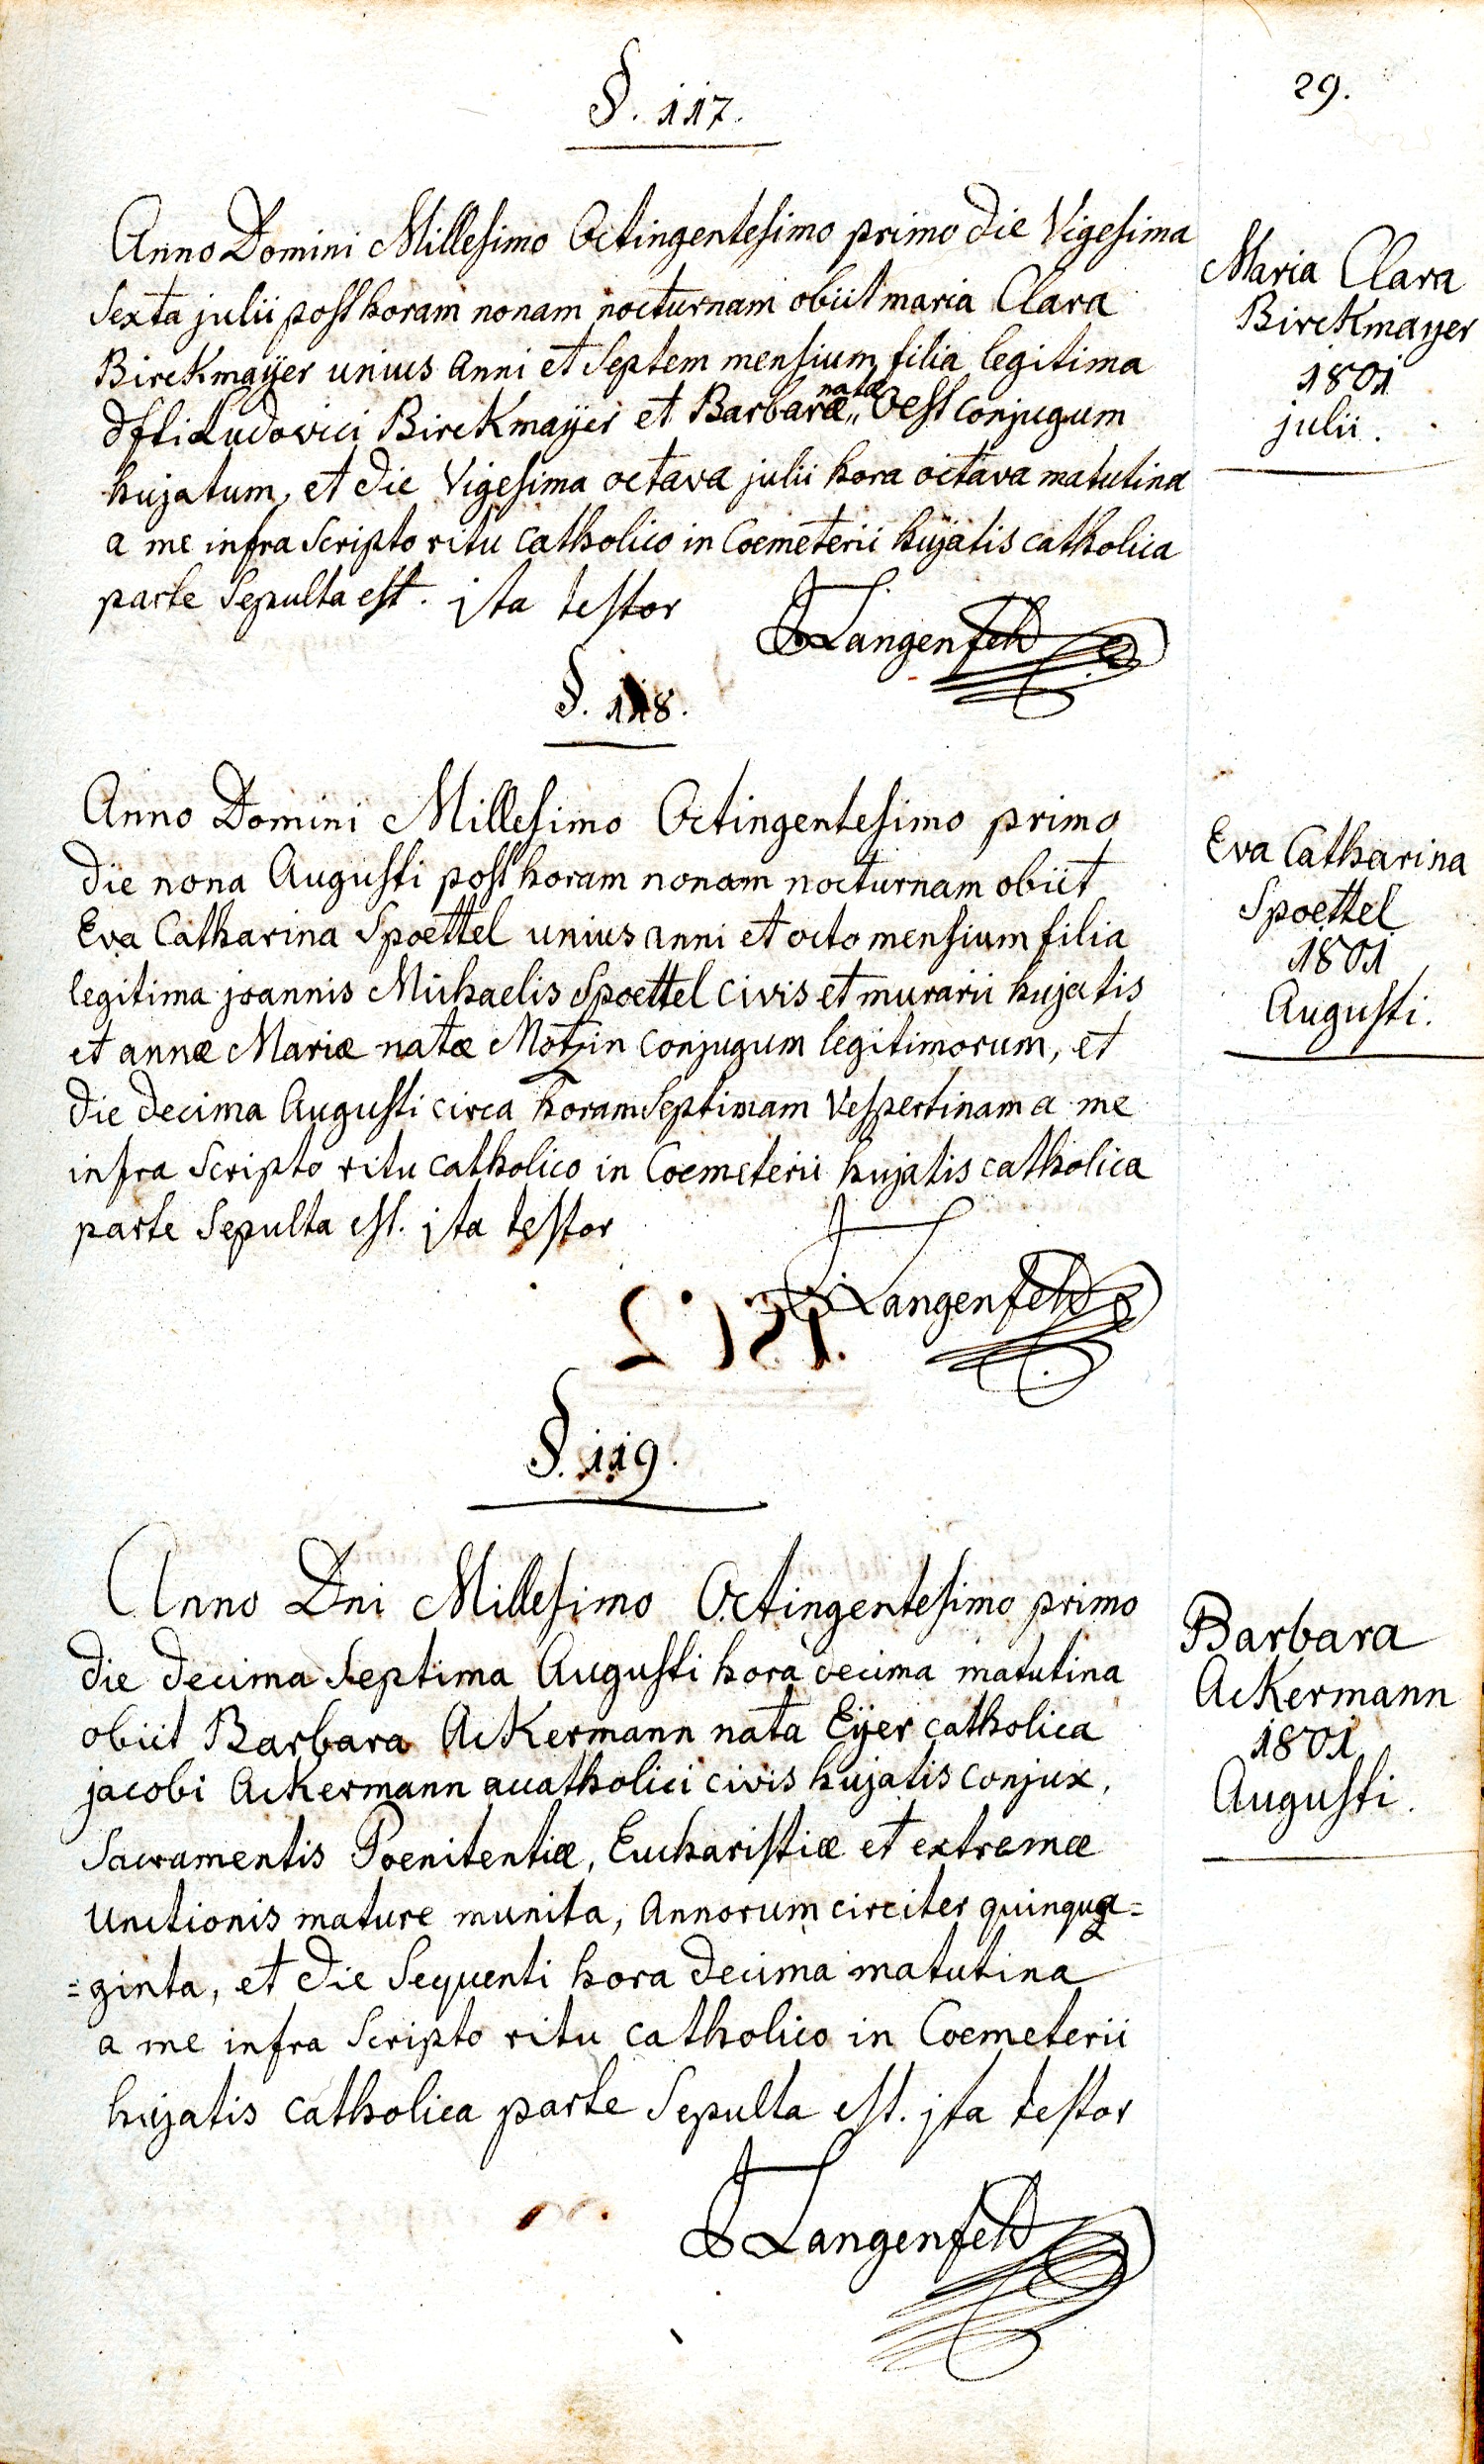 29.
§. 117.
Anno Domini Millesimo Octingentesimo primo die Vigesima
Sexta julii post horam nonam nocturnam obiit maria Clara
BircKmaÿer unius anni et Septem mensium filia legitima
dfti Ludovici BircKmaÿer et Barbaræ natæ Oest conjugum
hujatum, et die Vigesima octava julii hora octava matutina
a me infra Scripto ritu catholico in Coemeterii hujatis catholica
parte Sepulta est. jta testor
Langenfeld
Maria Clara
BircKmayer
1801
julii.
§. 118.
Anno Domini Millesimo Octingentesimo primo
die nona Augusti post horam nonam nocturnam obiit
Eva Catharina Spoettel unius anni et octo mensium filia
legitima joannis Michaelis Spoettel civis et murarii hujatis
et annæ Mariæ natæ Motzin conjugum legitimorum, et
die decima Augusti circa horam Septimam Vespertinam a me
infra Scripto ritu catholico in Coemeterii hujatis catholica
parte Sepulta est. jta testor
Langenfeld
Eva Catharina
Spoettel
1801
Augusti.
§. 119.
Anno Dni Millesimo Octingentesimo primo
die decima Septima Augusti hora decima matutina
obiit Barbara AcKermann nata Eÿer catholica
jacobi AcKermann acatholici civis hujatis conjux,
Sacramentis Poenitentiæ, Eucharistiæ et extremæ
Unctionis mature munita, annorum circiter quinqua=
=ginta, et die Sequenti hora decima matutina
a me infra Scripto ritu catholico in Coemeterii
hujatis catholica parte Sepulta est. jta testor
Langenfeld
Barbara
AcKermann
1801
Augusti.